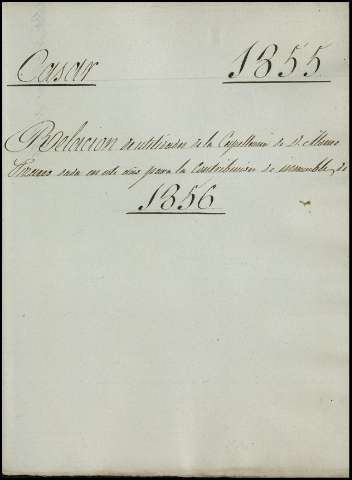 Casar 1855
Relacion de utilidades de la Capellania de D. Alonso
dada en este año para la Contribucion de inmuebles de
1856